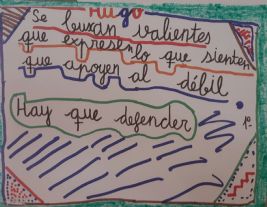 Hugo
Se buscan valientes
que expresen lo que sienten
que apoyen al débil
Hay que defender